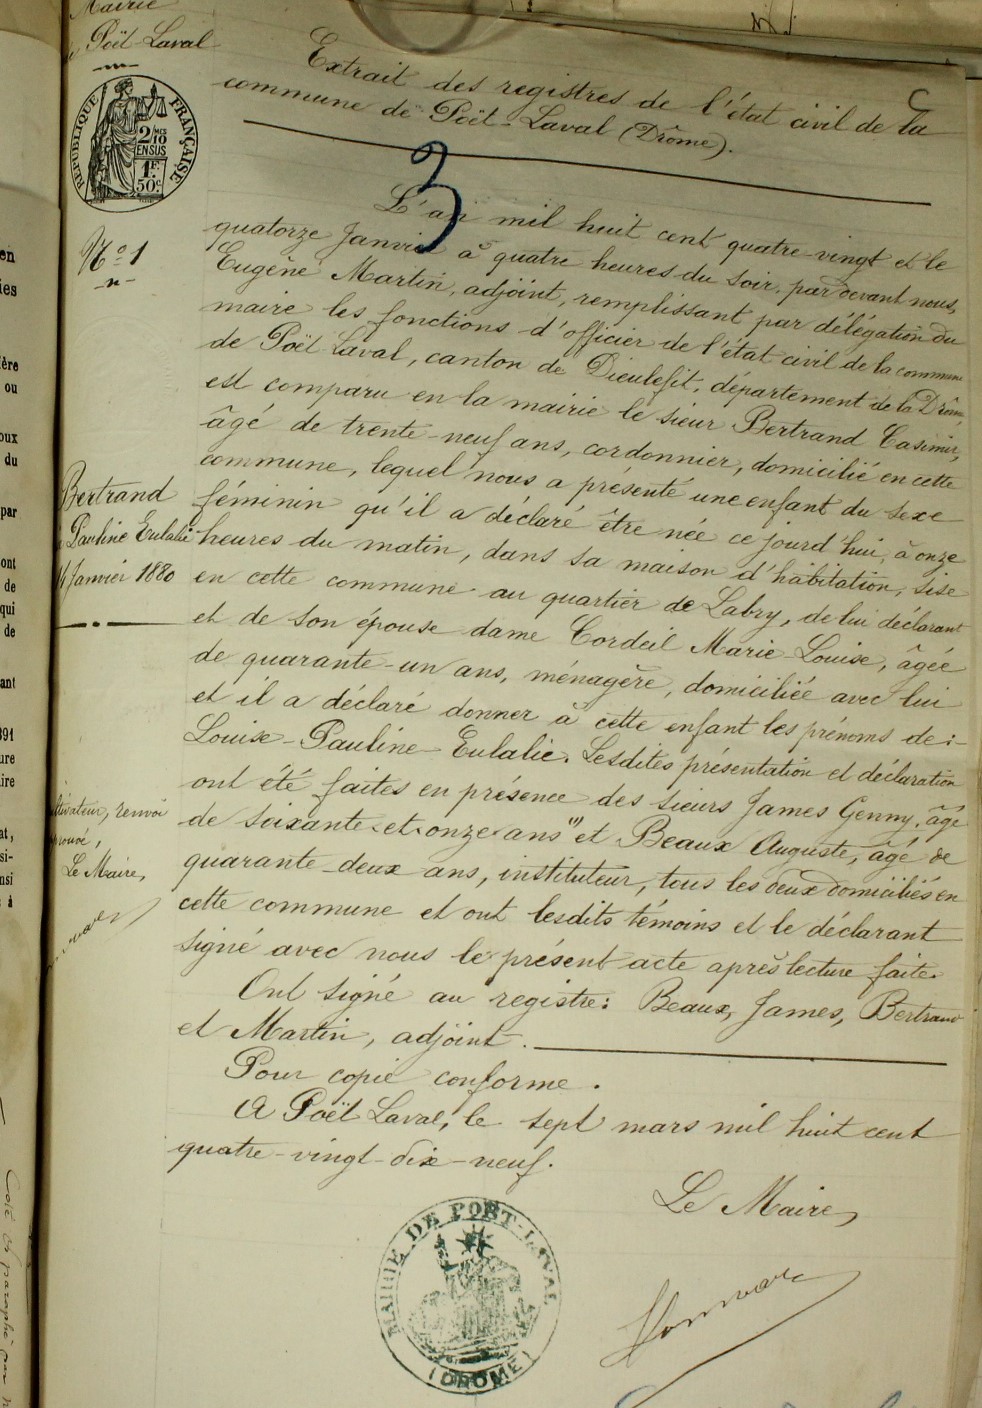 Mairie
Poët-Laval
RÉPUBLIQUE FRANÇAISE
2/10 MES
EN SUS
1F.
50c
C
Extrait des registres de l'état civil de la
commune de Poët-Laval (Drôme).
3
L'an mil huit cent quatre-vingt et le
quatorze Janvier à quatre heures du soir, par devant nous,
Eugène Martin, adjoint, remplissant par délégation du
maire les fonctions d'officier de l'état civil de la commune
de Poët Laval, canton de Dieulefit, département de la Drôme
est comparu en la mairie le sieur Bertrand Casimir,
âgé de trente-neuf ans, cordonnier, domicilié en cette
commune, lequel nous a présenté une enfant du sexe
féminin qu'il a déclaré être née ce jourd'hui, à onze
heures du matin, dans sa maison d'habitation, sise
en cette commune au quartier de Labry, de lui déclarant
et de son épouse dame Cordeil Marie-Louise, âgée
de quarante-un ans, ménagère, domiciliée avec lui
et il a déclaré donner à cette enfant les prénoms de :-
Louise-Pauline-Eulalie. Lesdites présentation et déclaration
ont été faites en présence des sieurs James Genny, âgé
de soixante-et-onze ans " et Beaux Auguste, âgé de
quarante-deux ans, instituteur, tous les deux domiciliés en
cette commune et ont lesdits témoins et le déclarant
signé avec nous le présent acte après lecture faite.
Ont signé au registre: Beaux, James, Bertrand
et Martin, adjoint.
Pour copie conforme.
A Poët Laval, le sept mars mil huit cent
quatre-vingt-dix-neuf.
Le Maire,
MAIRIE DE POET-LAVAL
(DROME)
No 1
Bertrand
Pauline Eulalie
14 Janvier 1880
renvoi
Le Maire,